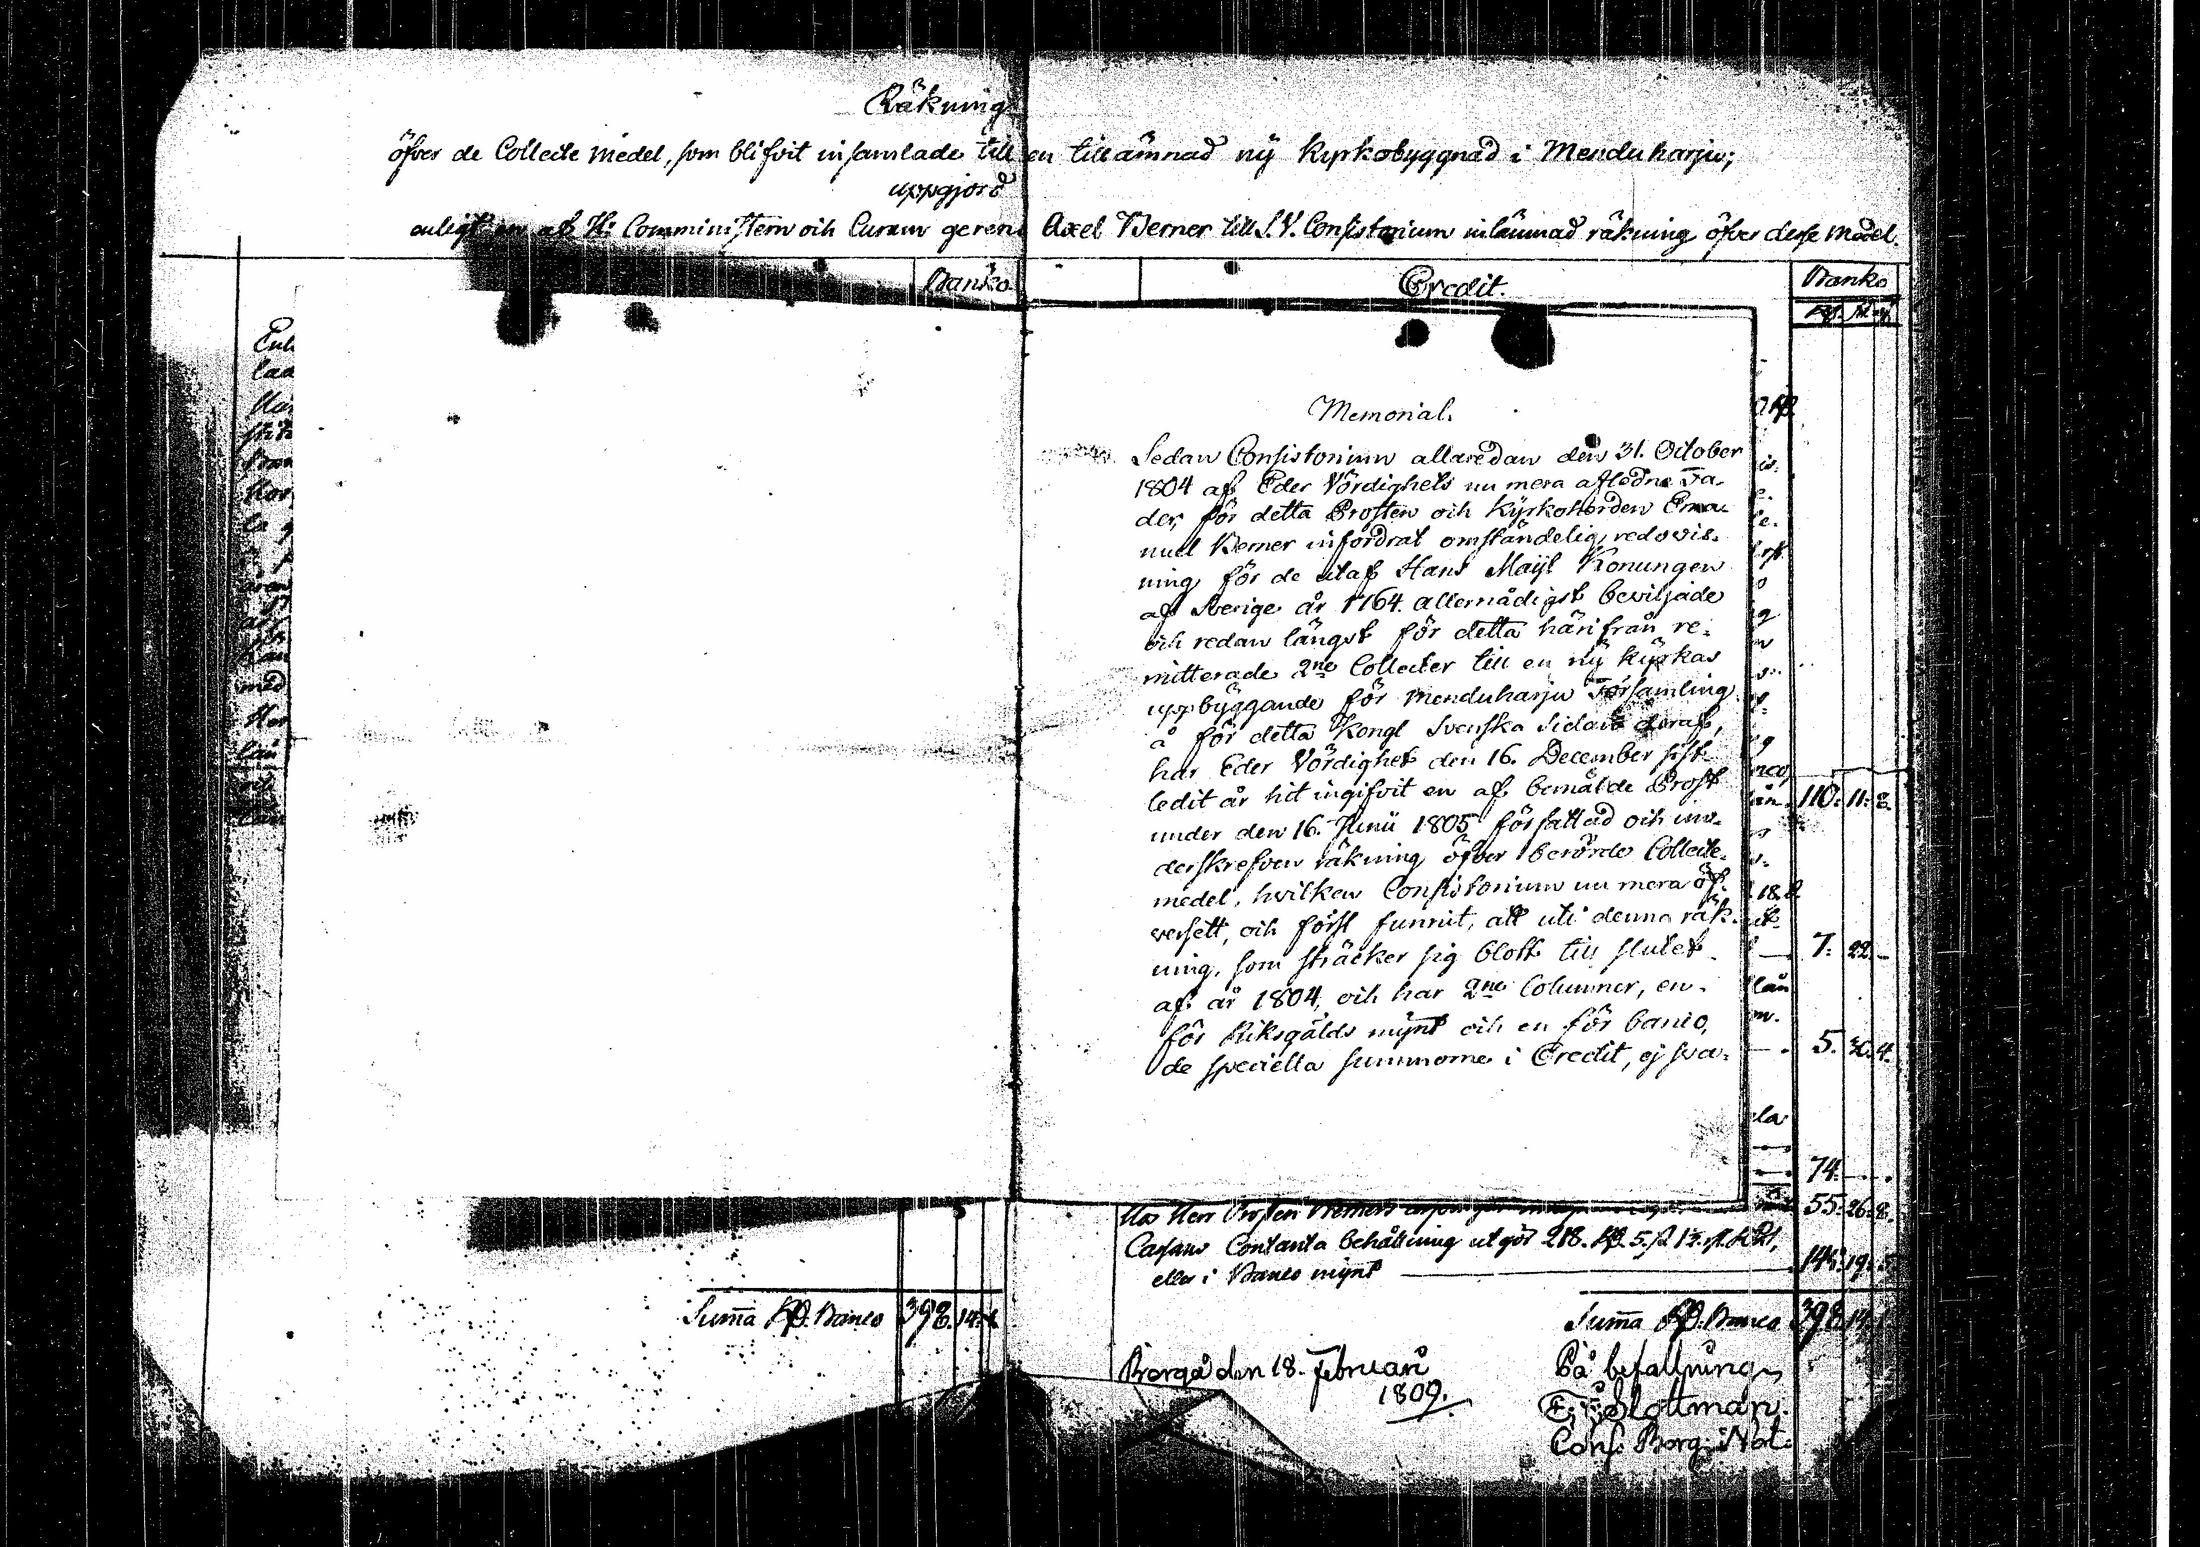 Räkning
öfver de Collecte medel, som blifvit insamlade till en tillämnad ny Kyrkobyggnad i Menduharju;
uppgjord
enligt en af Hr Comministern och Curam gerens Axel Berner till S. V. Consistorium inlämnad räkning öfver desse medel.
Banko
Credit.
Banko
Memorial.
Sedan Consistorium allaredan den 31. October
1804 af Eder Vördighets nu mera aflednе Fa-
der, för detta Prosten och Kyrkoherden Ema-
nuel Berner infordrat omständelig redovis-
ning för de utaf Hans Maijt Konungen
af Sverige år 1764. allernådigst beviljade
och redan längst för detta härifrån re-
mitterade 2ne Collecter till en ny kyrkas
uppbyggande för Menduharju Församling
å för detta Kongl Svenska sidan deraf,
har Eder Vördighet den 16. December sist-
ledit år hit ingifvit en af bemälde Prost
under den 16. Junii 1805 författad och un-
derskrefven räkning öfver berörde Collecte-
medel, hvilken Consistorium nu mera öf-
versett, och först funnit, att uti denna räk-
ning, som sträcker sig blott till slutet
af år 1804, och har 2ne Columner, en
för Riksgälds mynt och en för banco,
de speciella summorne i Credit, ej sva-
110. 11. 8.
7. 22. -
5. 30. 4.
74. - -
55. 26. 8.
Hos Herr Prosten Berners
Cassans Contanta behållning utgör 218. Rd. 5. s.
eller i Banco mynt 145. 19. 5.
Summa Rd. Banco 398. 14. 1.
Summa Rd. Banco 398. 14. 1.
Borgå den 18. Februarii
1809.
På befallning
Slottman.
Cons. Borg. Not.